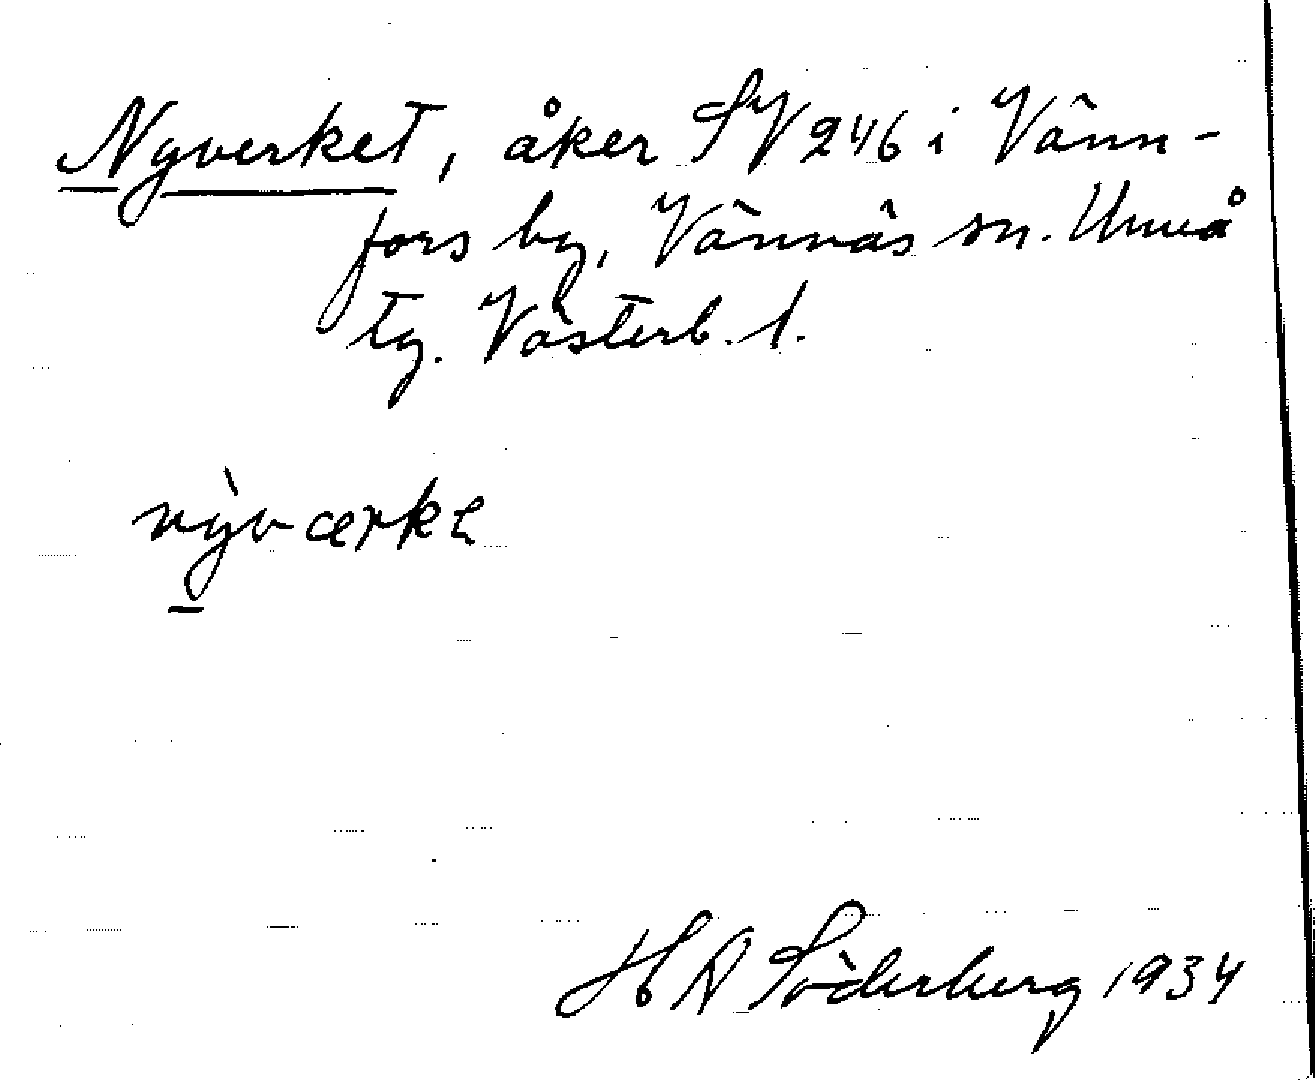 Nyverket, åker SV 246 i Vänn-
fors by, Vännäs sn. Umeå
tg. Västerb. l.
nỳværke
H A Söderberg 1934